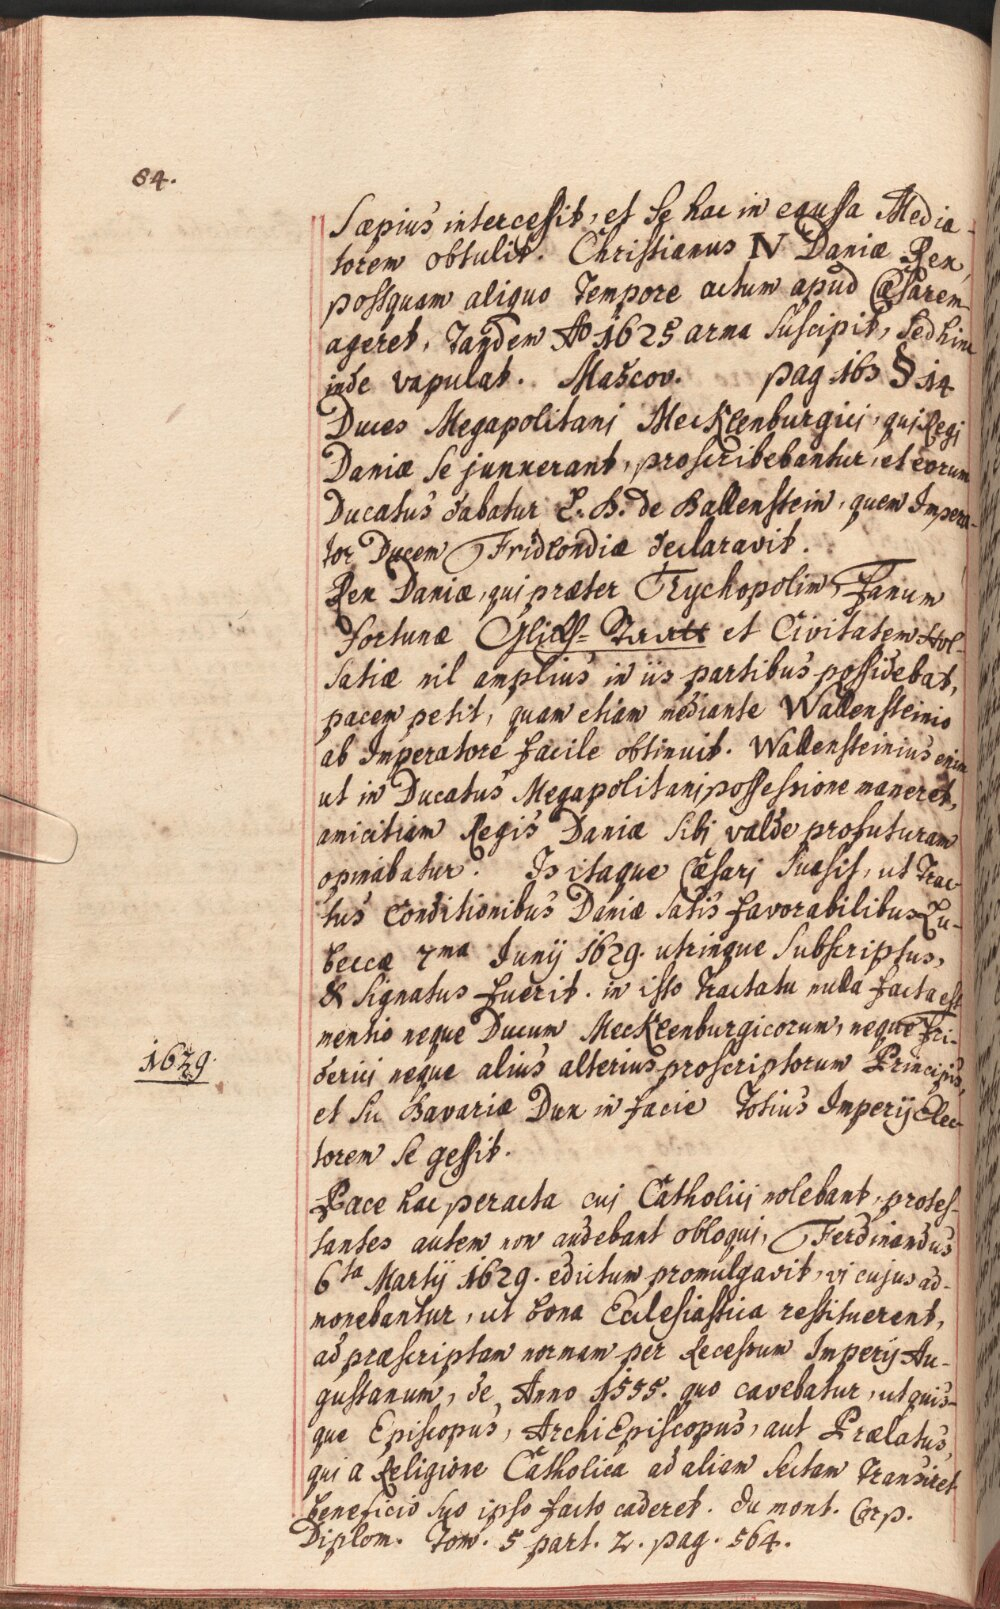 84.
Sæpius intercessit, et se hac in caussa Media-
torem obtulit. Christianus IV Daniæ Rex,
possquam aliquo Tempore actum apud Cæsarem
ageret, Tandem Ao 1625 arma suscipit, sed hinc
inde vapulat. Mascov. pag 163 § 14
Duces Megapolitani Mecklenburgici, qui Regi
Daniæ se junxerant, proscribebantur, et eorum
Ducatus dabatur L. B. de Wallenstein, quem Impera-
tor Ducem Fridlandiæ declaravit.
Rex Daniæ, qui præter Trychopolim, Fanum
Fortunæ Glücks= Statt et Civitatem Hol-
satiæ nil amplius in iis partibus possidebat,
pacem petit, quam etiam mediante Wallensteinio
ab Imperatore facile obtinuit. Wallensteinius enim
ut in Ducatus Megapolitani possessione maneret,
amicitiam Regis Daniæ sibi valde profuturam
opinabatur. Is itaque Cæsari suasit, ut Trac-
tus Conditionibus Daniæ satis favorabilibus Lu-
beccæ 7ma Iunij 1629. utrinque subscriptus,
& signatus fuerit. in isto Tractatu nulla facta est
mentio neque Ducum Mecklenburgicorum, neque Fri-
derici neque alius alterius proscriptorum Principis,
1629.
et sic Bavariæ Dux in facie Totius Imperij Elec-
torem se gessit.
Pace hac peracta cui Catholici nolebant, protes-
tantes autem non audebant obloqui, Ferdinandus
6ta Martij 1629. edictum promulgavit, vi cujus ad-
monebantur, ut bona Ecclesiastica restituerent,
ad præscriptam normam per Recessum Imperij Au-
gustanum, de Anno 1555. quo cavebatur, ut quis-
que Episcopus, ArchiEpiscopus, aut Prælatus,
qui a Religione Catholica ad aliam sectam Transiret
beneficio suo ipso facto caderet. du mont. Corp.
Diplom. Tom. 5 part. 2. pag. 564.